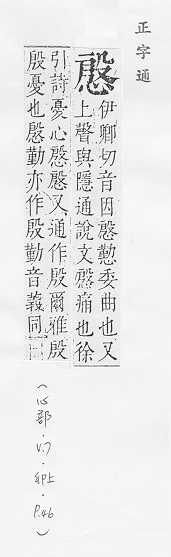 正字通
慇 伊卿切音因慇懃委曲也又
上聲與隱通說文慇痛也徐
引詩憂心慇慇又通作殷爾雅殷
殷憂也慇勤亦作殷勤音義同
(心部.